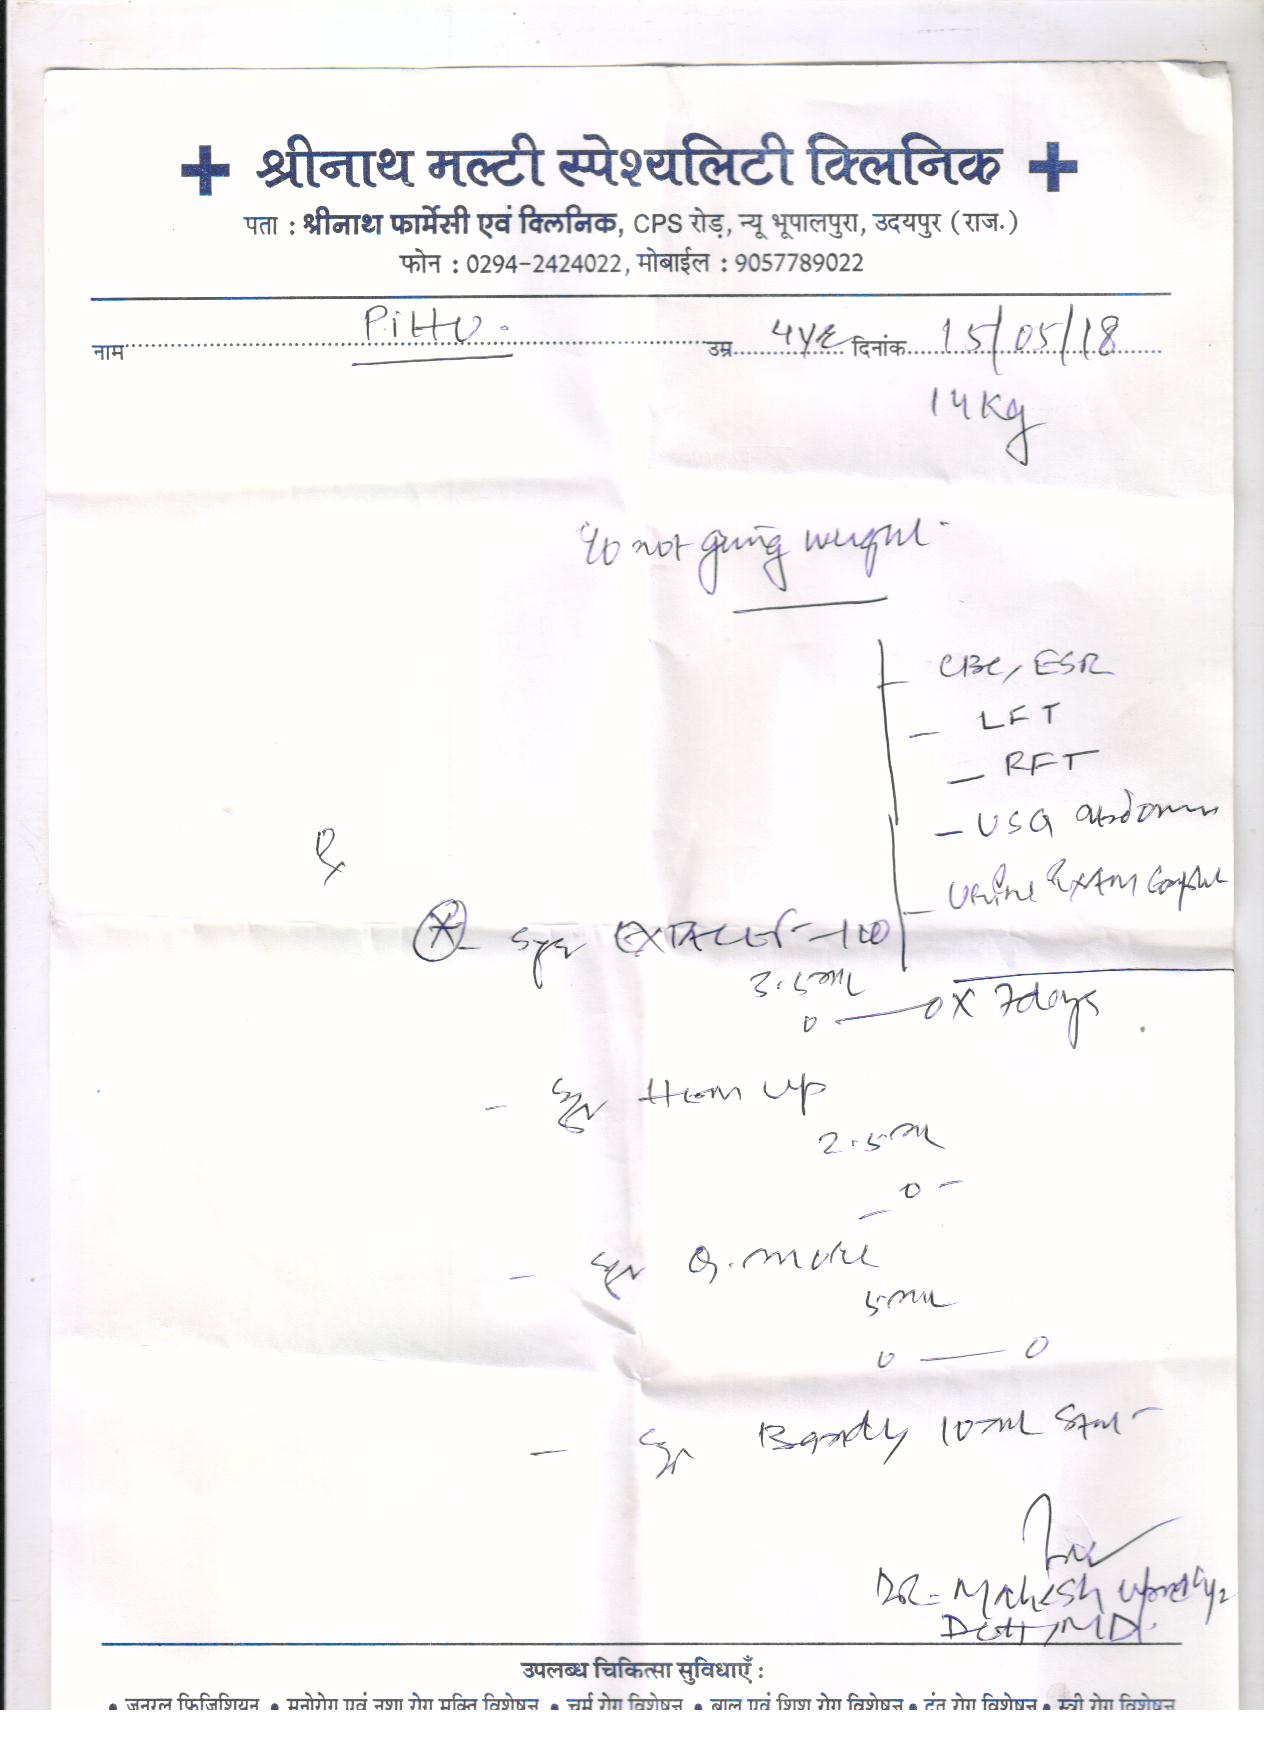 श्रीनाथ मल्टी स्पेश्यलिटी क्लिनिक
पता : श्रीनाथ फार्मेसी एवं क्लिनिक, CPS रोड़, न्यू भूपालपुरा, उदयपुर (राज.)
फोन : 0294-2424022, मोबाईल : 9057789022
नाम PiHU. उम्र 4yr दिनांक 15/05/18
14 Kg
not weight
CBC, ESR
- LFT
- RFT
- USG abdomen
- Urine Exam
Rx
Syr -100
3.5ml
0 — 0 x 7 days
- Syr Hem up
2.5ml
- 0 -
- Syr
5ml
0 — 0
- Syr Bandy 10ml Stat
DR. Mahesh
DCH, MD.
उपलब्ध चिकित्सा सुविधाएँ :
• जनरल फिजिशियन • मनोरोग एवं नशा रोग मुक्ति विशेषज्ञ • चर्म रोग विशेषज्ञ • बाल एवं शिशु रोग विशेषज्ञ • दंत रोग विशेषज्ञ • स्त्री रोग विशेषज्ञ